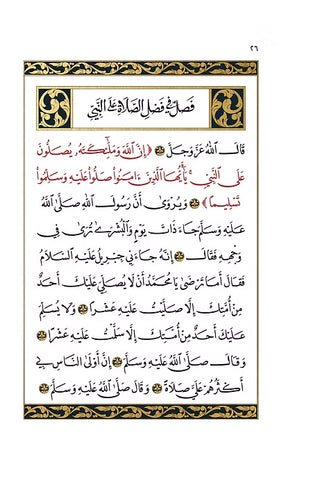 ٢٦
فَصْلٌ فِي فَضْلِ الصَّلَاةِ عَلَى النَّبِيِّ
قَالَ اللهُ عَزَّ وَجَلَّ ﴿إِنَّ اللَّهَ وَمَلَٰٓئِكَتَهُۥ يُصَلُّونَ
عَلَى النَّبِيِّ ۚ يَٰٓأَيُّهَا الَّذِينَ ءَامَنُوا صَلُّوا عَلَيْهِ وَسَلِّمُوا
تَسْلِيمًا﴾ وَيُرْوَى أَنَّ رَسُولَ اللهِ صَلَّى اللهُ
عَلَيْهِ وَسَلَّمَ جَاءَ ذَاتَ يَوْمٍ وَالْبُشْرَى تُرَى فِي
وَجْهِهِ فَقَالَ إِنَّهُ جَاءَنِي جِبْرِيلُ عَلَيْهِ السَّلَامُ
فَقَالَ أَمَا تَرْضَى يَا مُحَمَّدُ أَنْ لَا يُصَلِّيَ عَلَيْكَ أَحَدٌ
مِنْ أُمَّتِكَ إِلَّا صَلَّيْتُ عَلَيْهِ عَشْرًا وَلَا يُسَلِّمَ
عَلَيْكَ أَحَدٌ مِنْ أُمَّتِكَ إِلَّا سَلَّمْتُ عَلَيْهِ عَشْرًا
وَقَالَ صَلَّى اللهُ عَلَيْهِ وَسَلَّمَ إِنَّ أَوْلَى النَّاسِ بِي
أَكْثَرُهُمْ عَلَيَّ صَلَاةً وَقَالَ صَلَّى اللهُ عَلَيْهِ وَسَلَّمَ